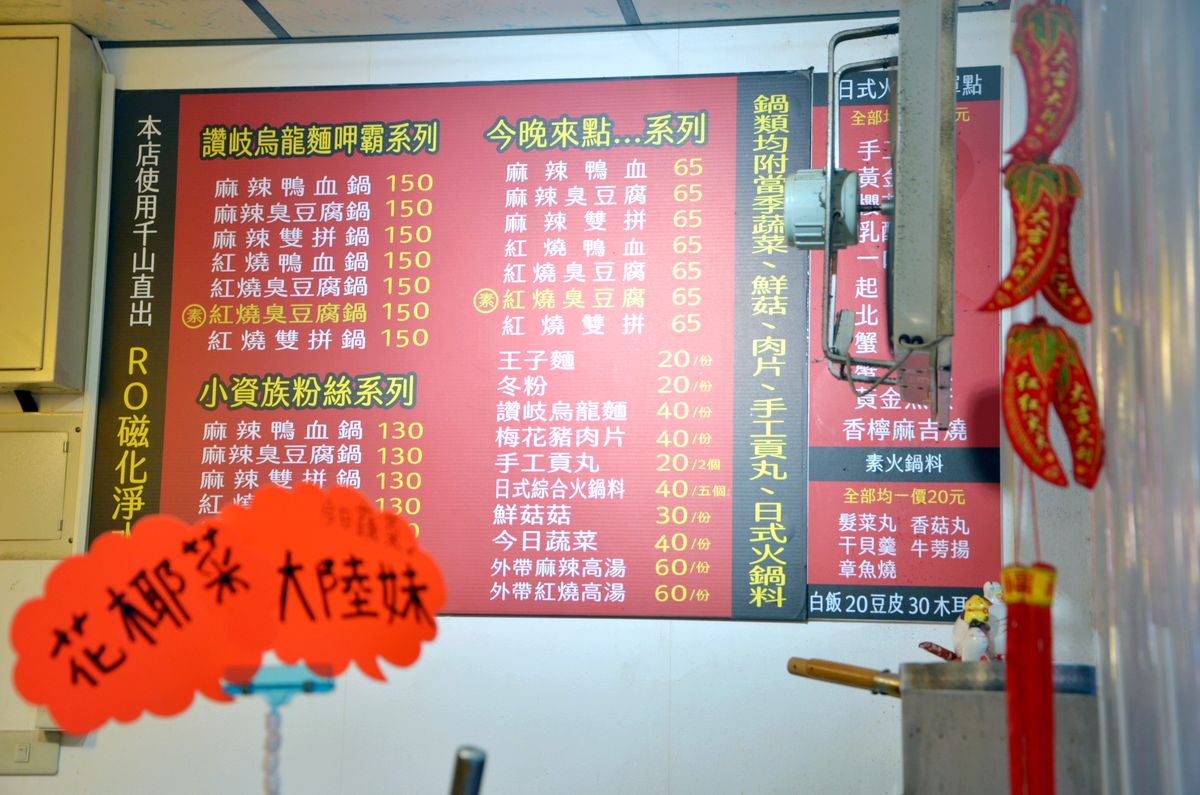 本店使用千山直出 RO磁化淨
讚岐烏龍麵呷霸系列
麻辣鴨血鍋 150
麻辣臭豆腐鍋 150
麻辣雙拼鍋 150
紅燒鴨血鍋 150
紅燒臭豆腐鍋 150
素 紅燒臭豆腐鍋 150
紅燒雙拼鍋 150
小資族粉絲系列
麻辣鴨血鍋 130
麻辣臭豆腐鍋 130
麻辣雙拼鍋 130
紅 130
今晚來點...系列
麻辣鴨血 65
麻辣臭豆腐 65
麻辣雙拼 65
紅燒鴨血 65
紅燒臭豆腐 65
素 紅燒臭豆腐 65
紅燒雙拼 65
王子麵 20/份
冬粉 20/份
讚岐烏龍麵 40/份
梅花豬肉片 40/份
手工貢丸 20/2個
日式綜合火鍋料 40/五個
鮮菇菇 30/份
今日蔬菜 40/份
外帶麻辣高湯 60/份
外帶紅燒高湯 60/份
鍋類均附當季蔬菜、鮮菇、肉片、手工貢丸、日式火鍋料
日式火 單點
全部均 元
手工
黃金
乳
一
起
北
蟹
蟹
黃金魚
香檸麻吉燒
素火鍋料
全部均一價20元
髮菜丸 香菇丸
干貝羹 牛蒡揚
章魚燒
白飯20豆皮30木耳
今日蔬菜
花椰菜 大陸妹
大吉大利
大吉大利
大吉大利